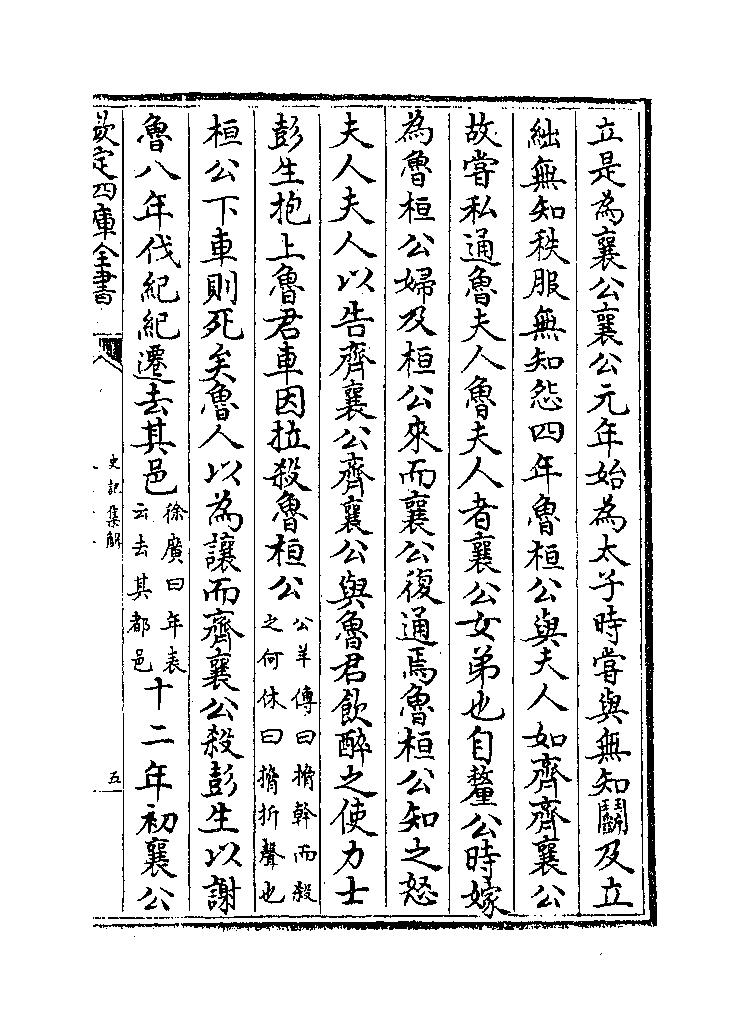 立是為襄公襄公元年始為太子時嘗與無知鬬及立
絀無知秩服無知怨四年魯桓公與夫人如齊齊襄公
故嘗私通魯夫人魯夫人者襄公女弟也自釐公時嫁
為魯桓公婦及桓公來而襄公復通焉魯桓公知之怒
夫人夫人以告齊襄公齊襄公與魯君飲醉之使力士
彭生抱上魯君車因拉殺魯桓公公羊傳曰搚幹而殺之何休曰搚折聲也
桓公下車則死矣魯人以為讓而齊襄公殺彭生以謝
魯八年伐紀紀遷去其邑徐廣曰年表云去其都邑十二年初襄公
欽定四庫全書
史記集解
五